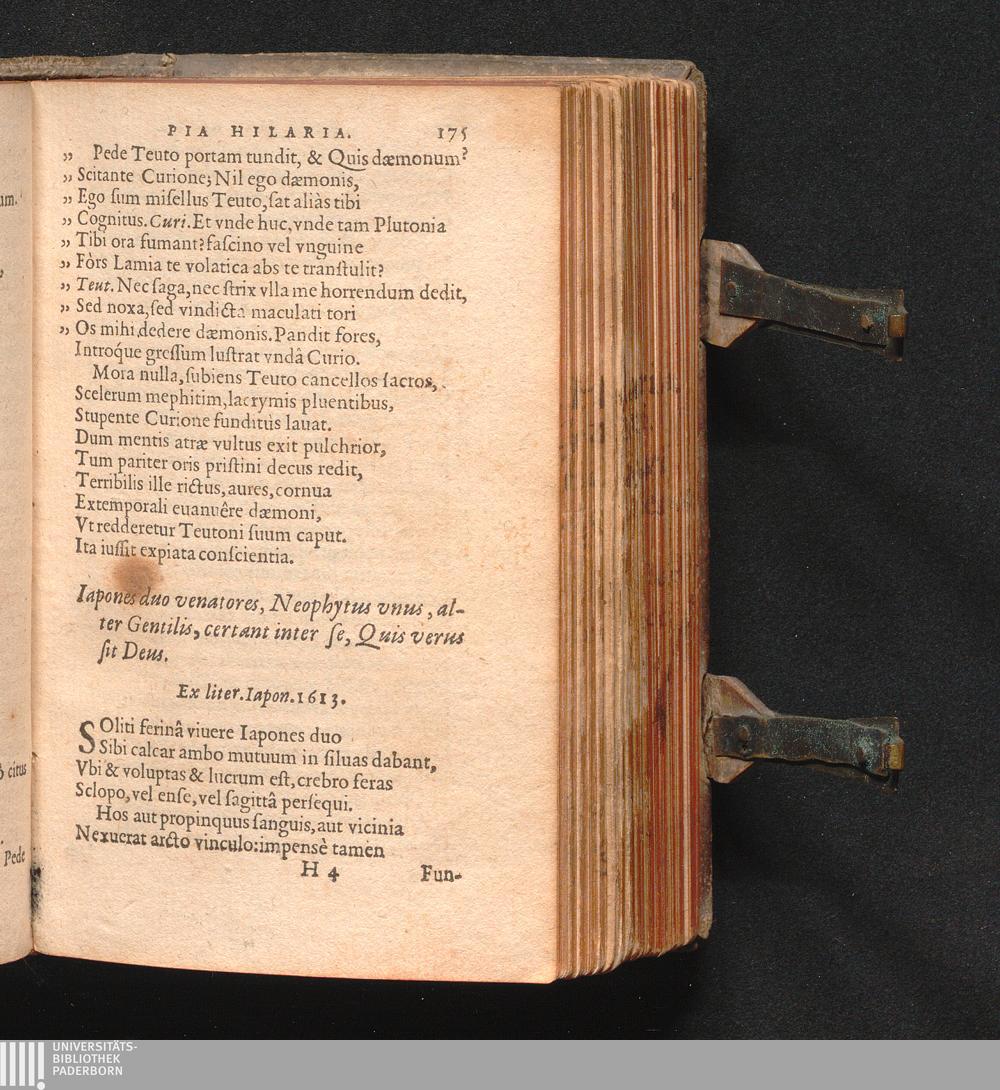 PIA HILARIA. 175
„ Pede Teuto portam tundit, & Quis dæmonum?
„ Scitante Curione; Nil ego dæmonis,
„ Ego ſum miſellus Teuto, ſat aliàs tibi
„ Cognitus. Curi. Et vnde huc, vnde tam Plutonia
„ Tibi ora fumant? faſcino vel vnguine
„ Fòrs Lamia te volatica abs te tranſtulit?
„ Teut. Nec ſaga, nec ſtrix vlla me horrendum dedit,
„ Sed noxa, ſed vindicta maculati tori
„ Os mihi dedere dæmonis. Pandit fores,
Introq́ue greſſum luſtrat vndâ Curio.
Mora nulla, ſubiens Teuto cancellos ſacros,
Scelerum mephitim, lacrymis pluentibus,
Stupente Curione funditùs lauat.
Dum mentis atræ vultus exit pulchrior,
Tum pariter oris priſtini decus redit,
Terribilis ille rictus, aures, cornua
Extemporali euanuêre dæmoni,
Vt redderetur Teutoni ſuum caput.
Ita iuſſit expiata conſcientia.
Iapones duo venatores, Neophytus vnus, al-
ter Gentilis, certant inter ſe, Quis verus
ſit Deus.
Ex liter. Iapon. 1613.
SOliti ferinâ viuere Iapones duo
Sibi calcar ambo mutuum in ſiluas dabant,
Vbi & voluptas & lucrum eſt, crebro feras
Sclopo, vel enſe, vel ſagittâ perſequi.
Hos aut propinquus ſanguis, aut vicinia
Nexuerat arcto vinculo: impensè tamen
H 4 Fun-
um.
citus
Pede
UNIVERSITÄTS-
BIBLIOTHEK
PADERBORN